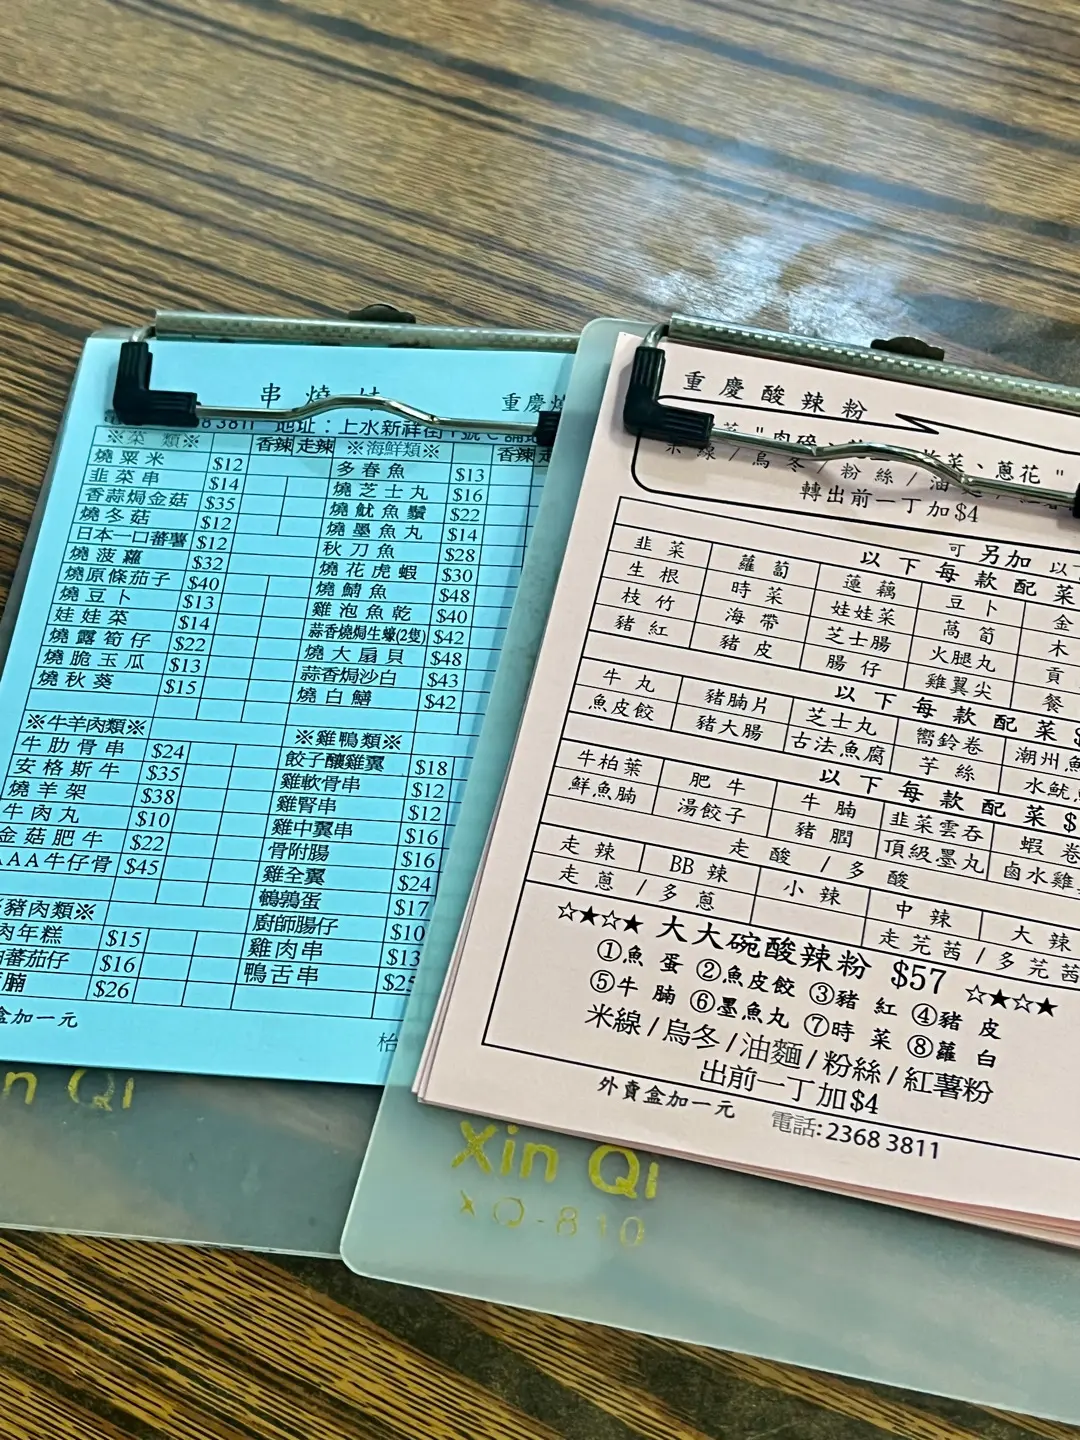 串燒
重慶
3811 地址：上水新祥街
※菜類※ 香辣 走辣 ※海鮮類※ 香辣
燒粟米 $12 多春魚 $13
韭菜串 $14 燒芝士丸 $16
香蒜焗金菇 $35 燒魷魚鬚 $22
燒冬菇 $12 燒墨魚丸 $14
日本一口蕃薯 $12 秋刀魚 $28
燒波蘿 $32 燒花虎蝦 $30
燒原條茄子 $40 燒鯖魚 $48
燒豆卜 $13 雞泡魚乾 $40
娃娃菜 $14 蒜香燒焗生蠔(2隻) $42
燒露筍仔 $22 燒大扇貝 $48
燒脆玉瓜 $13 蒜香焗沙白 $43
燒秋葵 $15 燒白鱔 $42
※牛羊肉類※ ※雞鴨類※
牛肋骨串 $24 餃子釀雞翼 $18
安格斯牛 $35 雞軟骨串 $12
燒羊架 $38 雞腎串 $12
牛肉丸 $10 雞中翼串 $16
金菇肥牛 $22 骨附腸 $16
AAA牛仔骨 $45 雞全翼 $24
鵪鶉蛋 $17
豬肉類※ 廚師腸仔 $10
肉年糕 $15 雞肉串 $13
蕃茄仔 $16 鴨舌串 $25
腩 $26
盒加一元
枱
重慶酸辣粉
菜"肉碎、 菜、蔥花"
米線/烏冬/粉絲/油
轉出前一丁加$4
可另加以
以下每款配菜
韭菜 蘿蔔 蓮藕 豆卜 金
生根 時菜 娃娃菜 萵筍 木
枝竹 海帶 芝士腸 火腿丸 貢
豬紅 豬皮 腸仔 雞翼尖 餐
以下每款配菜$
牛丸 豬腩片 芝士丸 嚮鈴卷 潮州魚
魚皮餃 豬大腸 古法魚腐 芋絲 水魷
以下每款配菜$
牛柏葉 肥牛 牛腩 韭菜雲吞 蝦卷
鮮魚腩 湯餃子 豬膶 頂級墨丸 鹵水雞
走酸/多酸
走辣 BB辣 小辣 中辣 大辣
走蔥/多蔥 走芫茜/多芫茜
☆★☆★大大碗酸辣粉 $57 ☆★☆★
①魚蛋 ②魚皮餃 ③豬紅 ④豬皮
⑤牛腩 ⑥墨魚丸 ⑦時菜 ⑧蘿白
米線/烏冬/油麵/粉絲/紅薯粉
出前一丁加$4
外賣盒加一元 電話:2368 3811
n Qi
Xin Qi
XQ-810